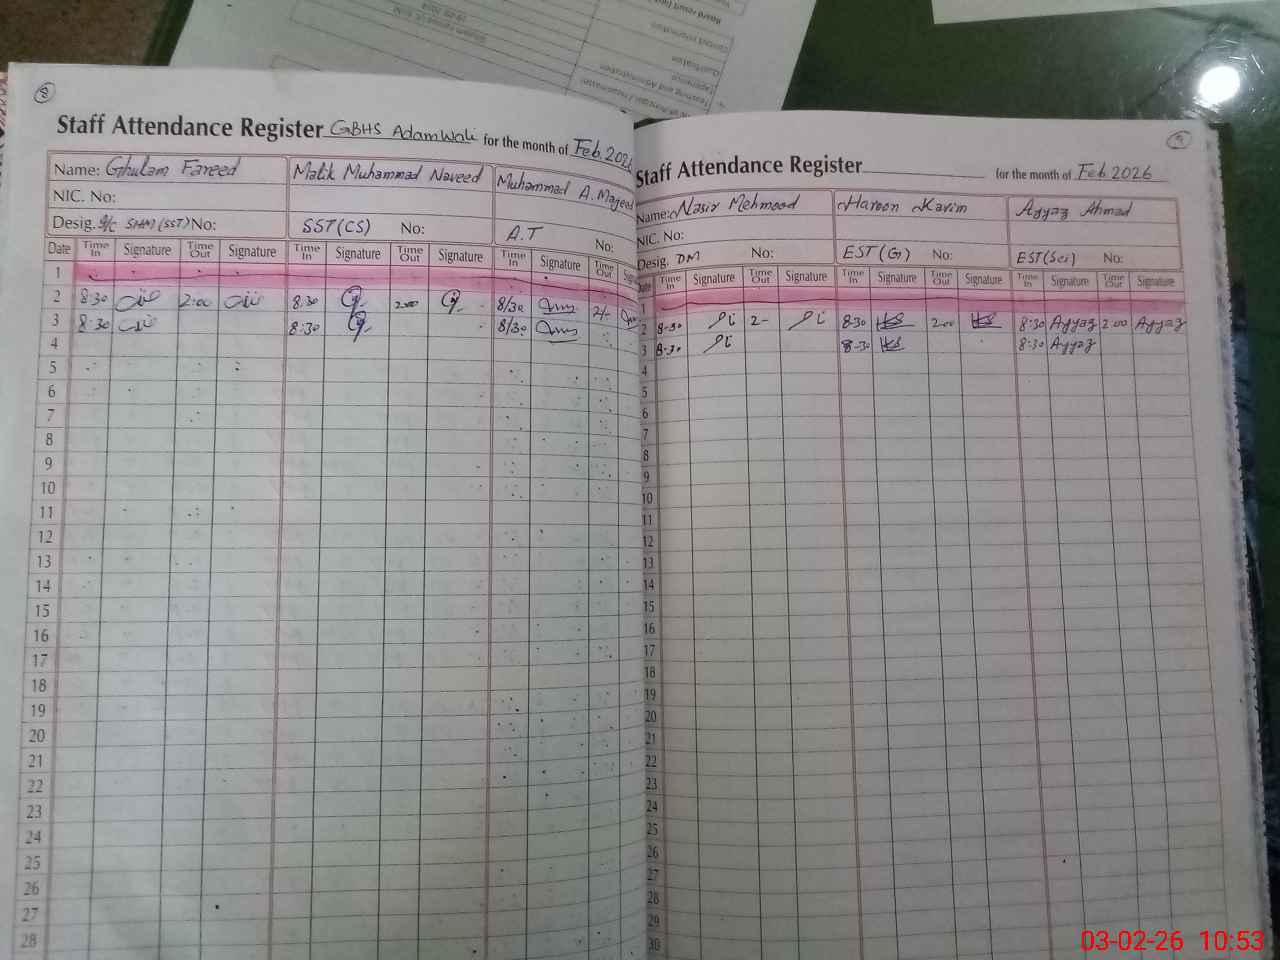 8
Staff Attendance Register GBHS AdamWali for the month of Feb. 2026
Name: Ghulam Fareed Malik Muhammad Naveed Muhammad A. Majeed
NIC. No:
Desig. I/C SHM (SST) No: SST (CS) No: A.T No:
Date Time In Signature Time Out Signature Time In Signature Time Out Signature Time In Signature Time Out
1
2 8:30 2:00 8:30 2:00 8/30 2/-
3 8:30 8:30 8/30
4
5
6
7
8
9
10
11
12
13
14
15
16
17
18
19
20
21
22
23
24
25
26
27
28
9
Staff Attendance Register for the month of Feb 2026
Name: Nasir Mehmood Haroon Karim Ayyaz Ahmad
NIC. No:
Desig. DM No: EST (G) No: EST (Sci) No:
Time In Signature Time Out Signature Time In Signature Time Out Signature Time In Signature Time Out Signature
1
2 8-30 2- 8-30 2-00 8:30 Ayyaz 2:00 Ayyaz
3 8-30 8-30 8:30 Ayyaz
4
5
6
7
8
9
10
11
12
13
14
15
16
17
18
19
20
21
22
23
24
25
26
27
28
29
30
03-02-26 10:53